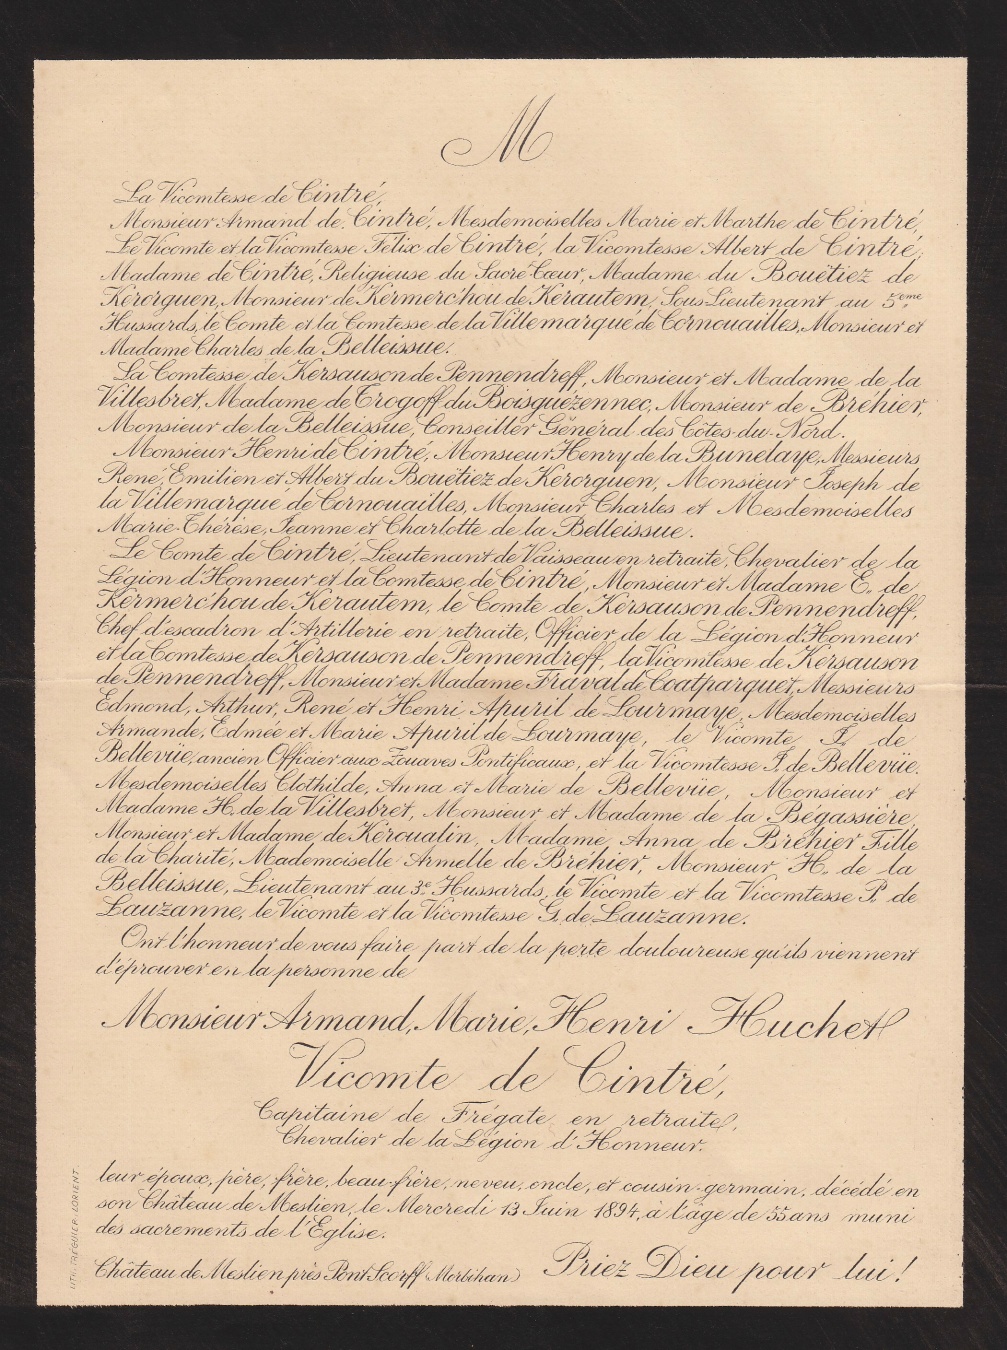 M
La Vicomtesse de Cintré,
Monsieur Armand de Cintré, Mesdemoiselles Marie et Marthe de Cintré,
Le Vicomte et la Vicomtesse Félix de Cintré, la Vicomtesse Albert de Cintré,
Madame de Cintré, Religieuse du Sacré-Cœur, Madame du Bouëtiez de
Kerorguen, Monsieur de Kermerc'hou de Kerautem, Sous Lieutenant au 5ème
Hussards, le Comte et la Comtesse de la Villemarqué de Cornouailles, Monsieur et
Madame Charles de la Belleissue.
La Comtesse de Kersauson de Pennendreff, Monsieur et Madame de la
Villesbret, Madame de Trogoff du Boisguézennec, Monsieur de Bréhier,
Monsieur de la Belleissue, Conseiller Général des Côtes-du-Nord.
Monsieur Henri de Cintré, Monsieur Henry de la Bunelaye, Messieurs
René, Emilien et Albert du Bouëtiez de Kerorguen, Monsieur Joseph de
la Villemarqué de Cornouailles, Monsieur Charles et Mesdemoiselles
Marie-Thérèse, Jeanne et Charlotte de la Belleissue.
Le Comte de Cintré, Lieutenant de Vaisseau en retraite, Chevalier de la
Légion d'Honneur et la Comtesse de Cintré, Monsieur et Madame E. de
Kermerc'hou de Kerautem, le Comte de Kersauson de Pennendreff,
Chef d'escadron d'Artillerie en retraite, Officier de la Légion d'Honneur
et la Comtesse de Kersauson de Pennendreff, la Vicomtesse de Kersauson
de Pennendreff, Monsieur et Madame Fraval de Coatparquet, Messieurs
Edmond, Arthur, René et Henri Apuril de Lourmaye, Mesdemoiselles
Armande, Edmée et Marie Apuril de Lourmaye, le Vicomte F. de
Bellevüe, ancien Officier aux Zouaves Pontificaux, et la Vicomtesse F. de Bellevüe,
Mesdemoiselles Clothilde, Anna et Marie de Bellevüe, Monsieur et
Madame H. de la Villesbret, Monsieur et Madame de la Bégassière,
Monsieur et Madame de Kéroualin, Madame Anna de Bréhier Fille
de la Charité, Mademoiselle Armelle de Bréhier, Monsieur H. de la
Belleissue, Lieutenant au 3e Hussards, le Vicomte et la Vicomtesse P. de
Lauzanne, le Vicomte et la Vicomtesse G. de Lauzanne.
Ont l'honneur de vous faire part de la perte douloureuse qu'ils viennent
d'éprouver en la personne de
Monsieur Armand, Marie, Henri Huchet
Vicomte de Cintré,
Capitaine de Frégate en retraite,
Chevalier de la Légion d'Honneur.
leur époux, père, frère, beau-frère, neveu, oncle, et cousin-germain, décédé en
son Château de Meslien, le Mercredi 13 Juin 1894, à l'âge de 55 ans muni
des sacrements de l'Eglise.
Priez Dieu pour lui!
Château de Meslien près Pont Scorff (Morbihan)
LITH. TRÉGUIER. LORIENT.